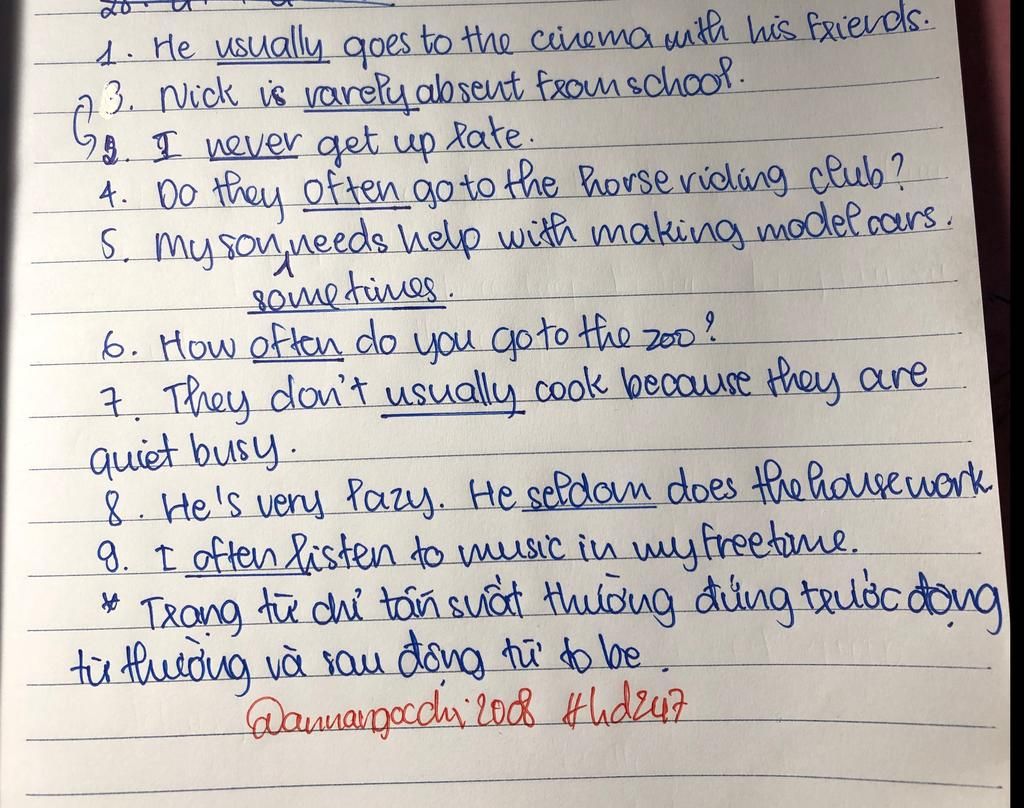 1. He usually goes to the cinema with his friends.
3. Nick is rarely absent from school.
2. I never get up late.
4. Do they often go to the horse riding club?
5. My son needs help with making model cars.
sometimes.
6. How often do you go to the zoo?
7. They don't usually cook because they are
quiet busy.
8. He's very lazy. He seldom does the housework
9. I often listen to music in my free time.
* Trạng từ chỉ tần suất thường đứng trước động
từ thường và sau động từ to be.
@annangocchi2008 #hd247